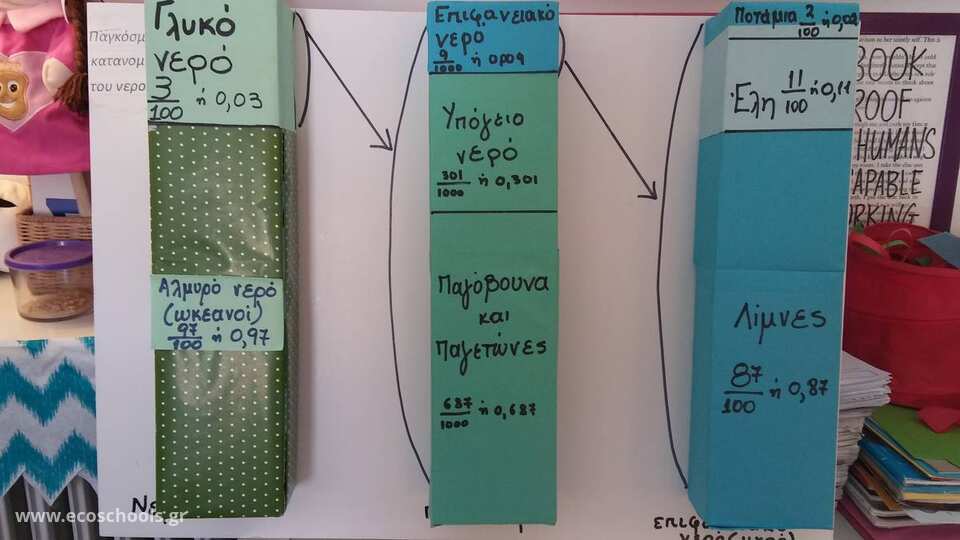 Παγκόσμ
κατανομ
του νερο
Γλυκό
νερό
3/100 ή 0,03
Αλμυρό νερό
(ωκεανοί)
97/100 ή 0,97
Επιφανειακό
νερό
9/1000 ή 0,009
Υπόγειο
νερό
301/1000 ή 0,301
Παγόβουνα
και
Παγετώνες
687/1000 ή 0,687
Ποτάμια 2/100 ή 0,02
Έλη 11/100 ή 0,11
Λίμνες
87/100 ή 0,87
BOOK
ROOF
HUMANS
APABLE
RKING
www.ecoschools.gr